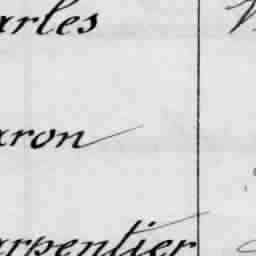 arles
aron
arpentier